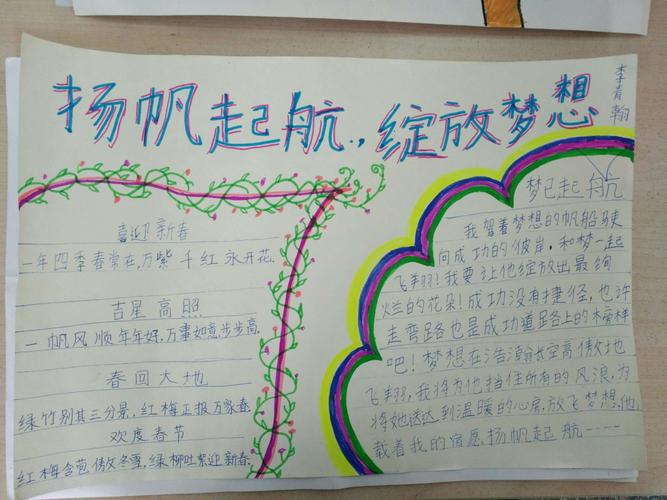 扬帆起航,绽放梦想
李青翰
喜迎新春
一年四季春常在,万紫千红永开花.
吉星高照
一帆风顺年年好,万事如意步步高.
春回大地
绿竹别其三分景,红梅正报万家春.
欢度春节
红梅含苞傲冬雪,绿柳吐絮迎新春.
梦已起航
我驾着梦想的帆船驶
向成功的彼岸,和梦一起
飞翔!我要让他绽放出最绚
烂的花朵!成功没有捷径,也许
走弯路也是成功道路上的木旁样
吧!梦想在浩瀚长空高傲地
飞翔,我将为他挡住所有的风浪,为
将她送达到温暖的心房,放飞梦想,他
载着我的宿愿扬帆起航----